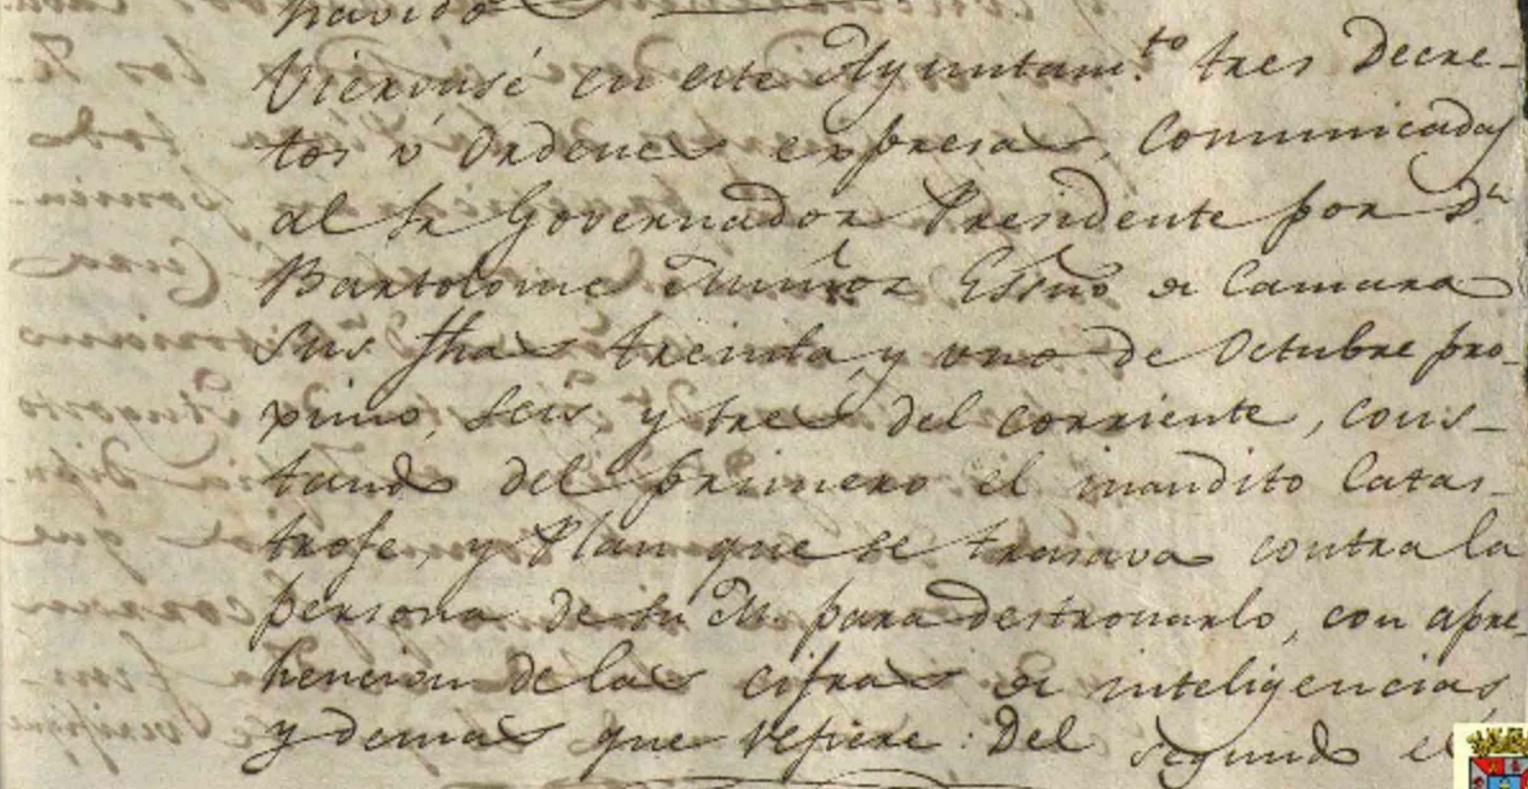 havido
Vieronsé en este Ayuntam.to tres Decre-
tos ú Ordenes expresas, Comunicadas
al Sr Governador Presidente por Dn
Bartolome Muñoz Essno de Camara
sus fhas treinta, y uno de Octubre pro-
ximo, seis, y tres del corriente, cons-
tando del primero el inaudito Catas-
trofe, y Plan que se trasava contra la
persona de su M. para destronarlo, con apre-
hencion de las cifras de inteligencias,
y demas que refiere: Del segundo el